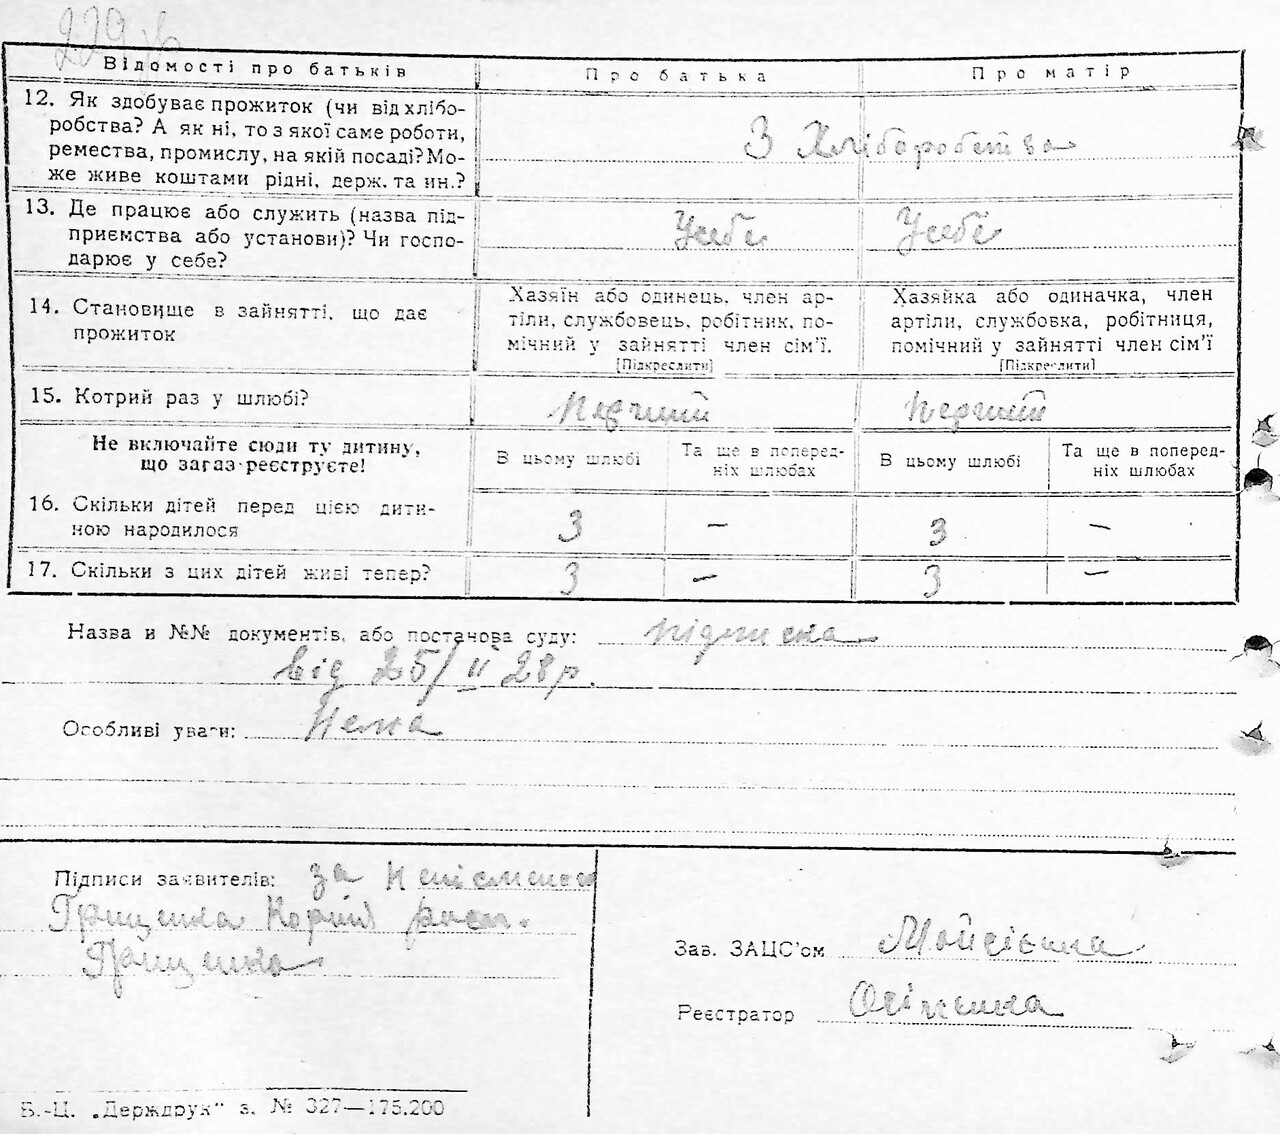 229 зв
Відомості про батьків Про батька Про матір
12. Як здобуває прожиток (чи від хлібо-
робства? А як ні, то з якої саме роботи,
ремества, промислу, на якій посаді? Мо-
же живе коштами рідні, держ. та ин.?
З Хліборобства
13. Де працює або служить (назва під-
приємства або установи)? Чи госпо-
дарює у себе?
Усебе Усебе
14. Становище в зайнятті, що дає
прожиток
Хазяїн або одинець, член ар-
тіли, службовець, робітник, по-
мічний у зайнятті член сім’ї.
[Підкреслити]
Хазяйка або одиначка, член
артіли, службовка, робітниця,
помічний у зайнятті член сім’ї
[Підкреслити]
15. Котрий раз у шлюбі? Перший Перший
Не включайте сюди ту дитину,
що зараз реєструєте!
В цьому шлюбі
Та ще в поперед-
ніх шлюбах
В цьому шлюбі
Та ще в поперед-
ніх шлюбах
16. Скільки дітей перед цією дити-
ною народилося
3 – 3 –
17. Скільки з цих дітей живі тепер? 3 – 3 –
Назва и №№ документів, або постанова суду: підписка
від 25/II 28р.
Особливі уваги: Нема
Підписи заявителів: за
Грищенка расп.
Грищенко
Зав. ЗАЦС’ом
Реєстратор
Б.-Ц. „Держдрук“ з. № 327—175.200